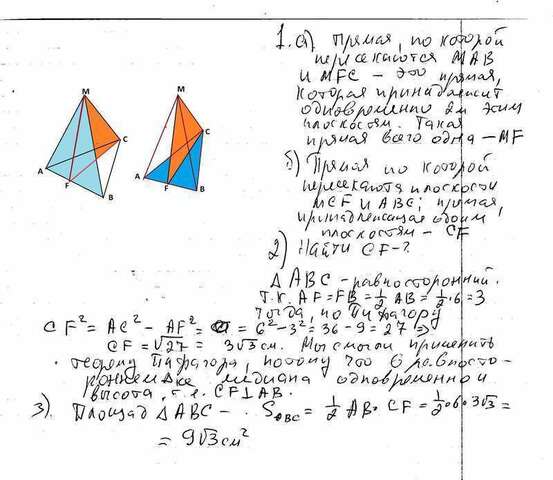 M
C
A
F
B
M
C
A
F
B
1. а) Прямая, по которой
пересекаются MAB
и MFC – это прямая,
которая принадлежит
одновременно 2м этим
плоскостям. Такая
прямая всего одна – MF
б) Прямая по которой
пересекаются плоскости
MCF и ABC; прямая,
принадлежащая обоим
плоскостям – CF
2) Найти CF-?
Δ ABC – равносторонний.
Т.к. AF = FB = 1/2 AB = 1/2 · 6 = 3
тогда, по Пифагору
CF² = AC² – AF² = = 6² – 3² = 36 – 9 = 27 ⇒
CF = √27 = 3√3 см. Мы смогли применить
теорему Пифагора, потому что в равносто-
роннем Δке медиана одновременно и
высота, т.е. CF⊥AB.
3). Площад Δ ABC – . S ABC = 1/2 AB · CF = 1/2 · 6 · 3√3 =
= 9√3 см²